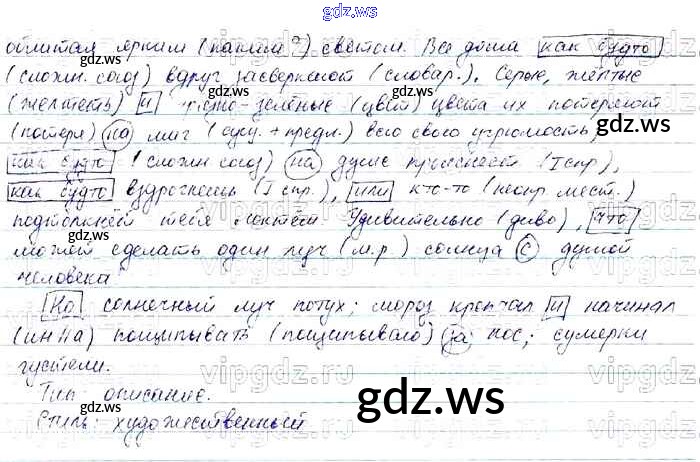 gdz.ws
облитая ярким (каким?) светом. Все дома как будто
(сложн. союз) вдруг засверкают (словар.). Серые, жёлтые
(желтеть) и грязно-зелёные (цвет) цвета их потеряют
(потеря) на миг (сущ. + предл.) всю свою угрюмость,
как будто (сложн союз) на душе прояснеет (I спр),
как будто вздрогнешь (I спр.), или кто-то (неопр. мест.)
подтолкнёт тебя локтем. Удивительно (диво), что
может сделать один луч (м.р.) солнца с душой
человека.
Но солнечный луч потух; мороз крепчал и начинал
(им На) пощипывать (пощипывало) за нос; сумерки
густели.
Тип описание.
Стиль: художественный
gdz.ws
gdz.ws
gdz.ws
gdz.ws
gdz.ws
gdz.ws